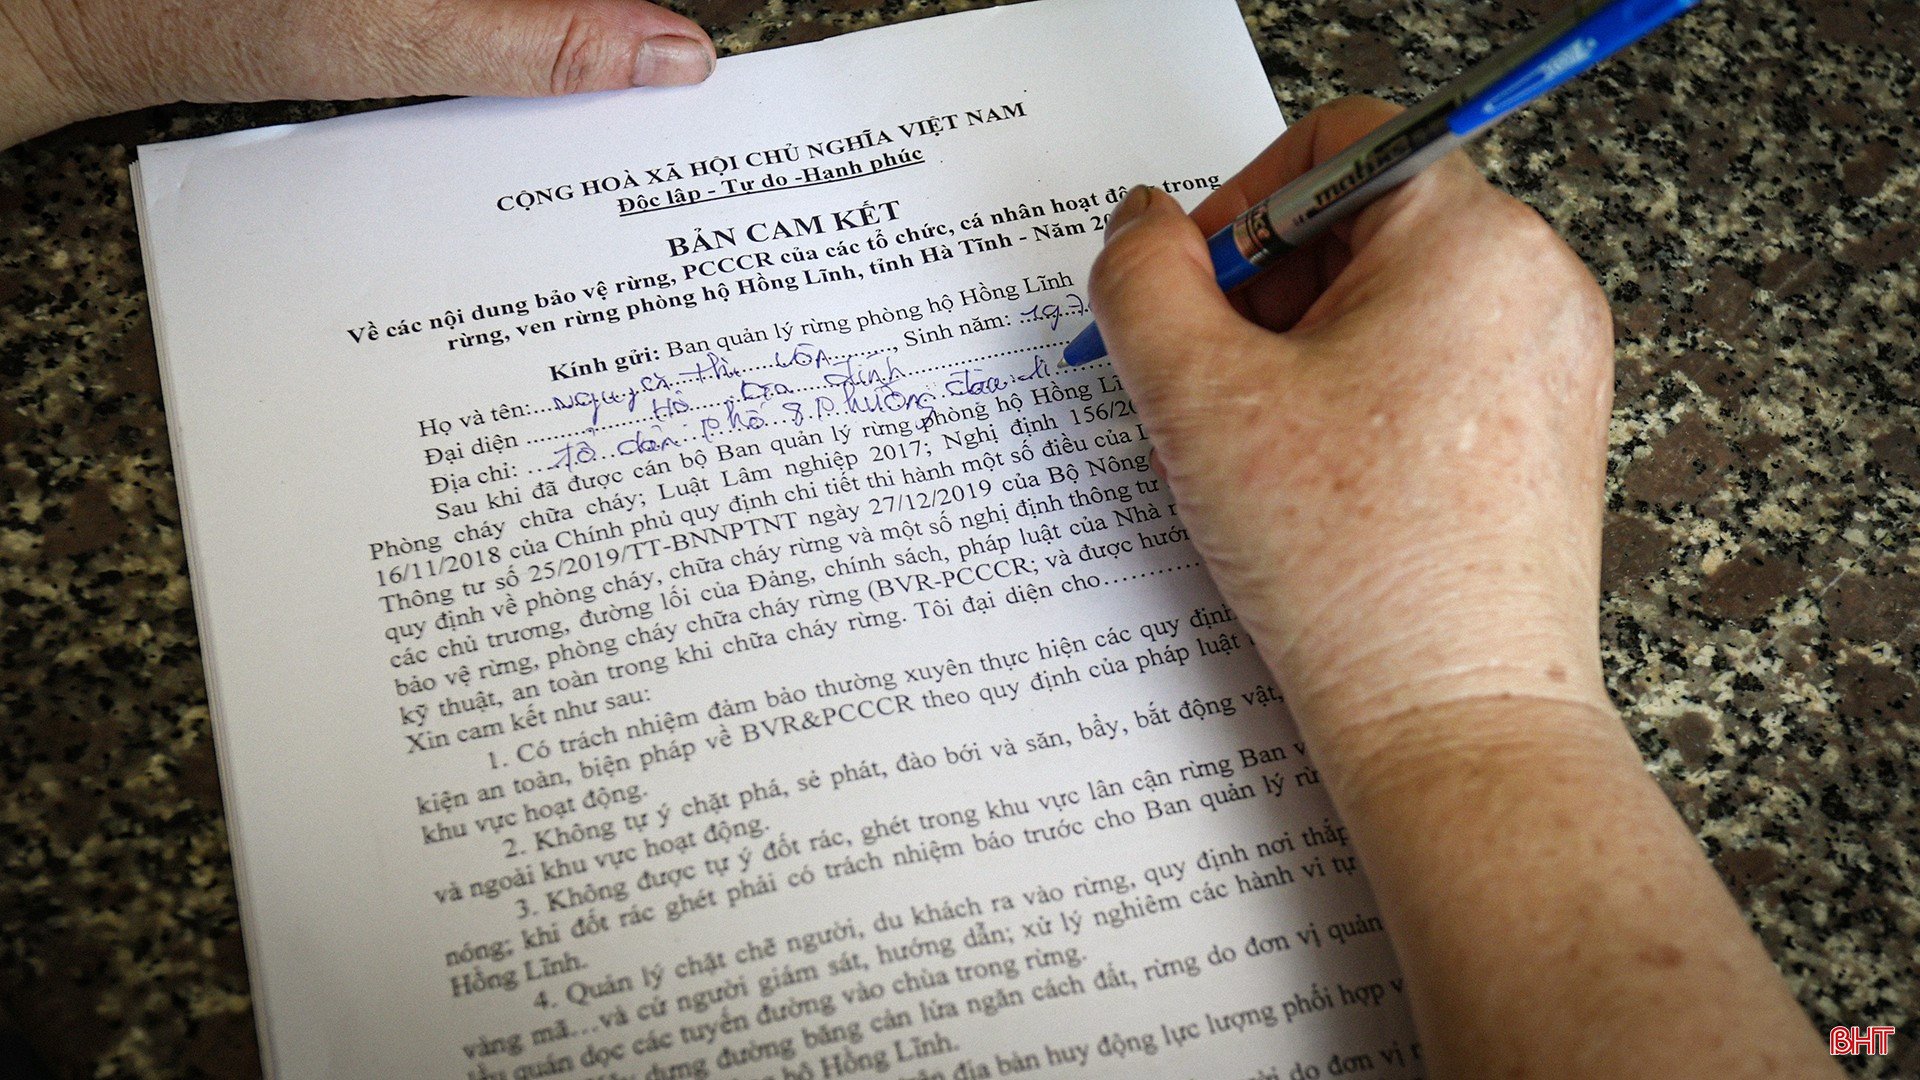 CỘNG HOÀ XÃ HỘI CHỦ NGHĨA VIỆT NAM
Độc lập - Tự do -Hạnh phúc
BẢN CAM KẾT
Về các nội dung bảo vệ rừng, PCCCR của các tổ chức, cá nhân hoạt động trong
rừng, ven rừng phòng hộ Hồng Lĩnh, tỉnh Hà Tĩnh - Năm
Kính gửi: Ban quản lý rừng phòng hộ Hồng Lĩnh
Họ và tên: Thị, Sinh năm:
Đại diện Hộ Gia đình
Địa chỉ: Tổ dân phố 8 Phường
Sau khi đã được cán bộ Ban quản lý rừng phòng hộ Hồng
Phòng cháy chữa cháy; Luật Lâm nghiệp 2017; Nghị định
16/11/2018 của Chính phủ quy định chi tiết thi hành một số điều của
Thông tư số 25/2019/TT-BNNPTNT ngày 27/12/2019 của Bộ Nông
quy định về phòng cháy, chữa cháy rừng và một số nghị định thông tư
các chủ trương, đường lối của Đảng, chính sách, pháp luật của Nhà
bảo vệ rừng, phòng cháy chữa cháy rừng (BVR-PCCCR; và được
kỹ thuật, an toàn trong khi chữa cháy rừng. Tôi đại diện cho
Xin cam kết như sau:
1. Có trách nhiệm đảm bảo thường xuyên thực hiện các quy định
kiện an toàn, biện pháp về BVR&PCCCR theo quy định của pháp luật
khu vực hoạt động.
2. Không tự ý chặt phá, sẻ phát, đào bới và săn, bẩy, bắt động vật,
và ngoài khu vực hoạt động.
3. Không được tự ý đốt rác, ghét trong khu vực lân cận rừng Ban
nóng; khi đốt rác ghét phải có trách nhiệm báo trước cho Ban quản lý
Hồng Lĩnh.
4. Quản lý chặt chẽ người, du khách ra vào rừng, quy định nơi
vàng mã...và cử người giám sát, hướng dẫn; xử lý nghiêm các hành vi tự
quán dọc các tuyến đường vào chùa trong rừng.
dựng đường băng cản lửa ngăn cách đất, rừng do đơn vị quản
hộ Hồng Lĩnh.
địa bàn huy động lực lượng phối hợp
do đơn vị
BHT